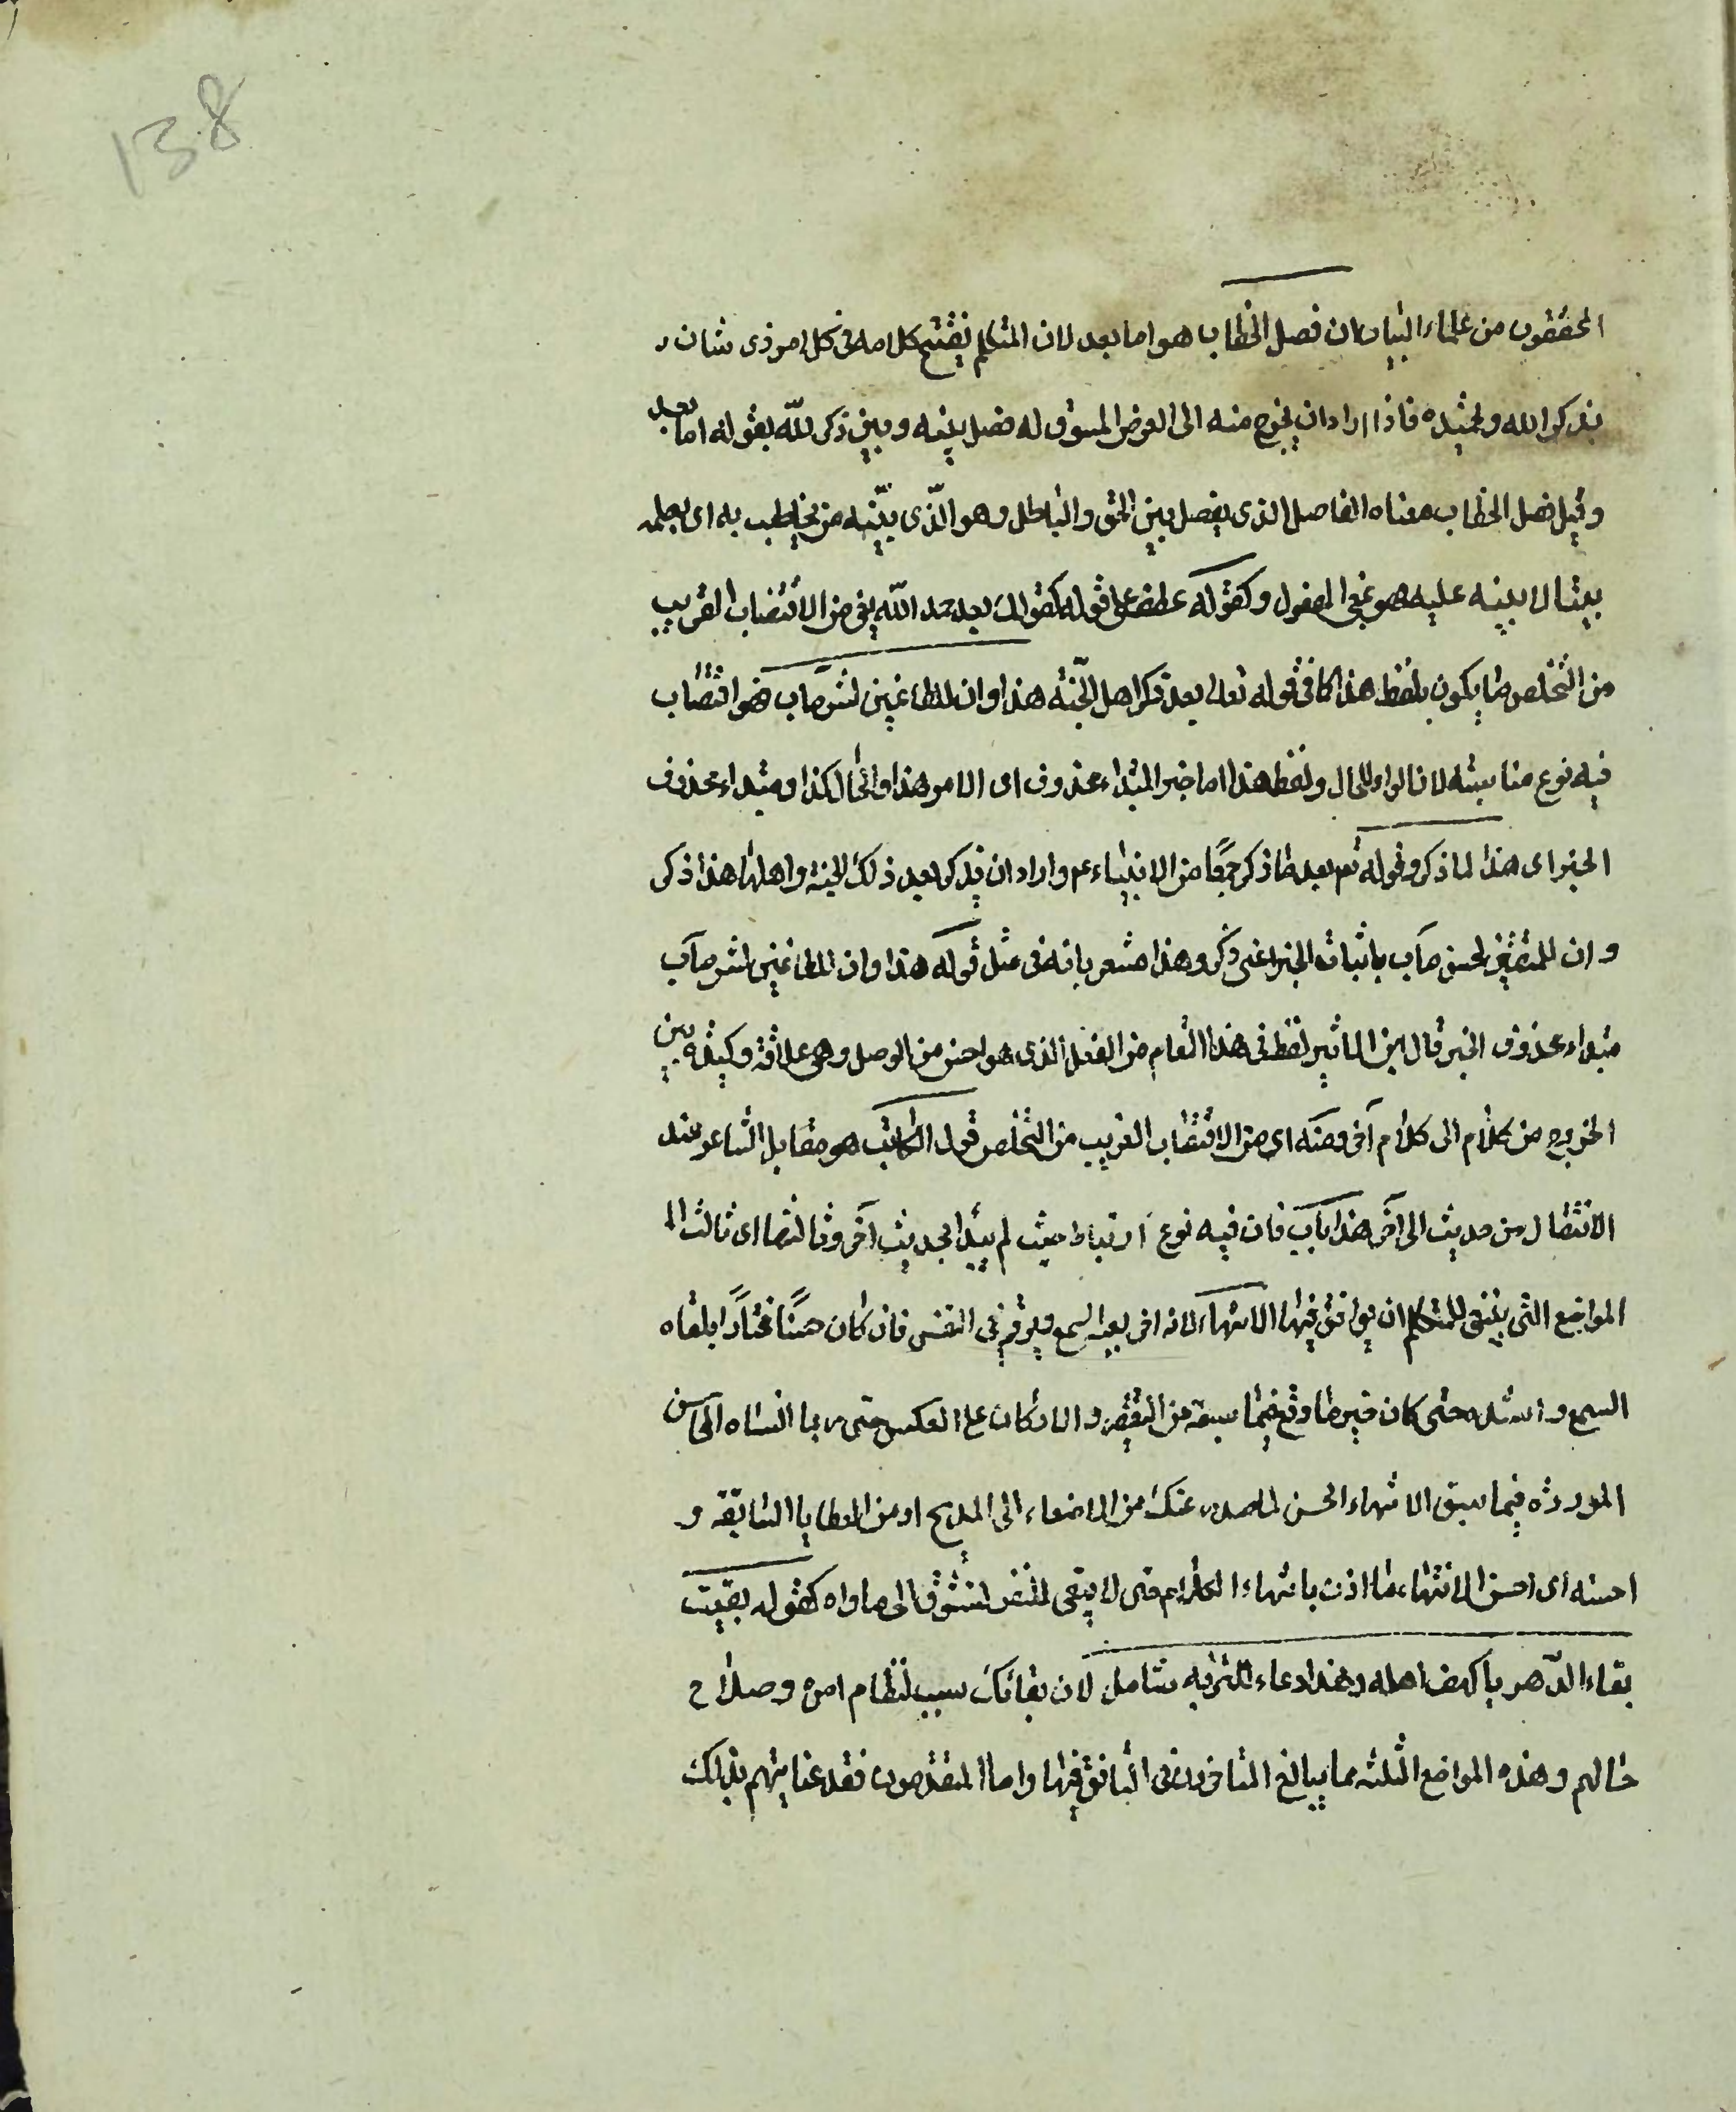 138
المحققون من علماء البيان ان فصل الخطاب هو اما بعد لان المتكلم يفتتح كلامه فى كل امر ذى شان
بذكر الله وتحميده فاذا اراد ان يخرج منه الى الغرض المسوق له فصل بينه وبين ذكر الله بقوله اما بعد
وقيل فصل الخطاب معناه الفاصل الذى يفصل بين الحق والباطل وهو الذّى يتبيّنه من يخاطب به اى يعلمه
بينا لا عليه فهو بمعنى المفعول وكقوله عطف على قوله كقولك بعد حمد الله يعنى من الاقتضاب القريب
من التخلص ما يكون بلفظ هذا كما فى قوله تعالى بعد ذكر اهل الجنّة هذا وان للطاغين لشر مآب فهو اقتضاب
فيه نوع مناسبته لان الواو للحال ولفظ هذا اما خبر المبتداء محذوف اى الامر هذا والحال كذا او مبتداء محذوف
الخبر اى هذا لما ذكر وقوله تع بعد ما ذكر جمعًا من الانبياء ع م واراد ان يذكر بعد ذلك الجنة واهلها هذا ذكر
وان للمتقين لحسن مآب باثبات الخبر اعنى ذكر وهذا مشعر بانه فى مثل قوله هذا وان للطاغين لشر مآب
مبتداء محذوف الخبر قال ابن الاثير لفظ فى هذا المقام من الفصل الذى هو احسن من الوصل وهى علاقة وكيدة بين
الخروج من كلام الى كلام آخر ومنه اى من الاقتضاب القريب من التخلص قول الكاتب هو مقابل الشاعر عند
الانتقال من حديث الى آخر هذا باب فان فيه نوع ارتباط حيث لم يبتدا بحديث آخر وثالثها اى ثالث ال
المواضع التى ينبغى للمتكلم ان يتانق فيها الانتهاء لانه اخر يعيه السمع ويرتسم فى النفس فان كان حسنًا مختارًا تلقاه
السمع واستلذه حتى كان جبر ما وقع فيما سبقه من التقصير والا كان على العكس حتى ربما انساه المحاسن
الموردة فيما سبق الانتهاء الحسن لما صدر عنك من الاصغاء الى المديح او من العطايا السابقة و
احسنه اى احسن الانتهاء ما اذن بانتهاء الكلام حتى لا يبقى للنفس تشوق الى ما وراه كقوله بقيت
بقاء الدّهر يا كهف اهله وهذا دعاء للبريّه شامل لان بقائك سبب لنظام امره وصلاح
حالهم وهذه المواضع الثلثه مما يبالغ المتاخرون فى التانق فيها واما المتقدمون فقد عنايتهم بذلك